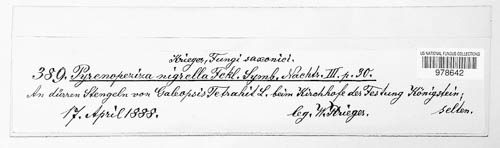 Krieger, Fungi saxonici.
US NATIONAL FUNGUS COLLECTIONS
978642
389. Pyrenopeziza nigrella Fckl. Symb. Nachtr. III. p. 30.
An dürren Stengeln von Galeopsis Tetrahit L. beim Kirchhofe der Festung Königstein;
17. April 1888. leg. W. Krieger. selten.